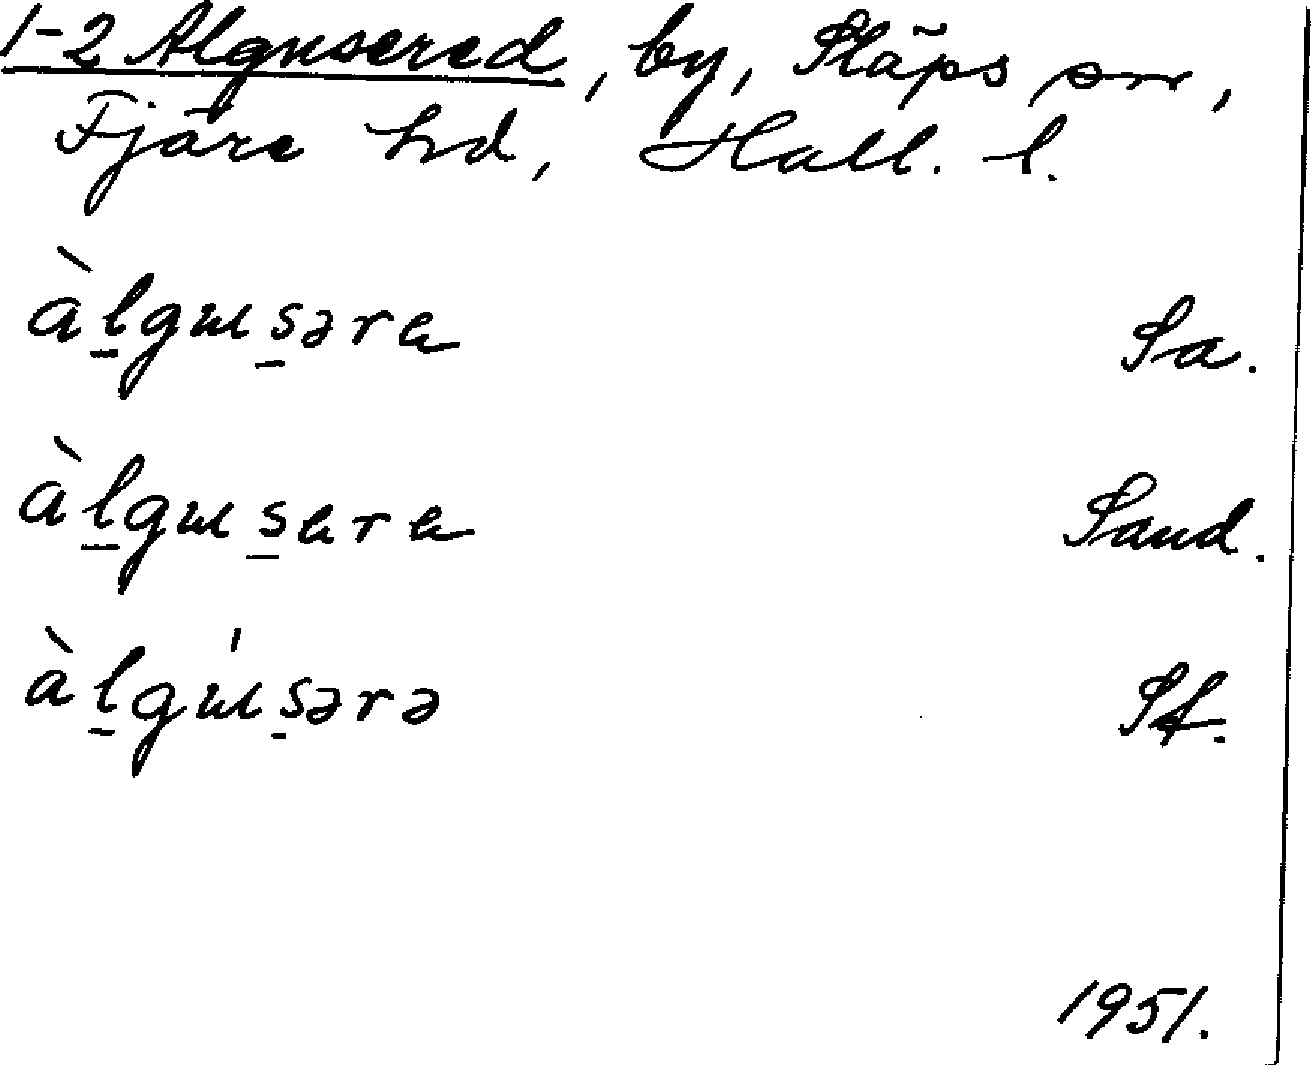 1-2 Algusered, by, Släps sn,
Fjäre hd, Hall. l.
àl̠gɯs̠əra Sa.
àl̠gɯs̠ara Sand.
àl̠gɯ́s̠ərə Sf.
1951.